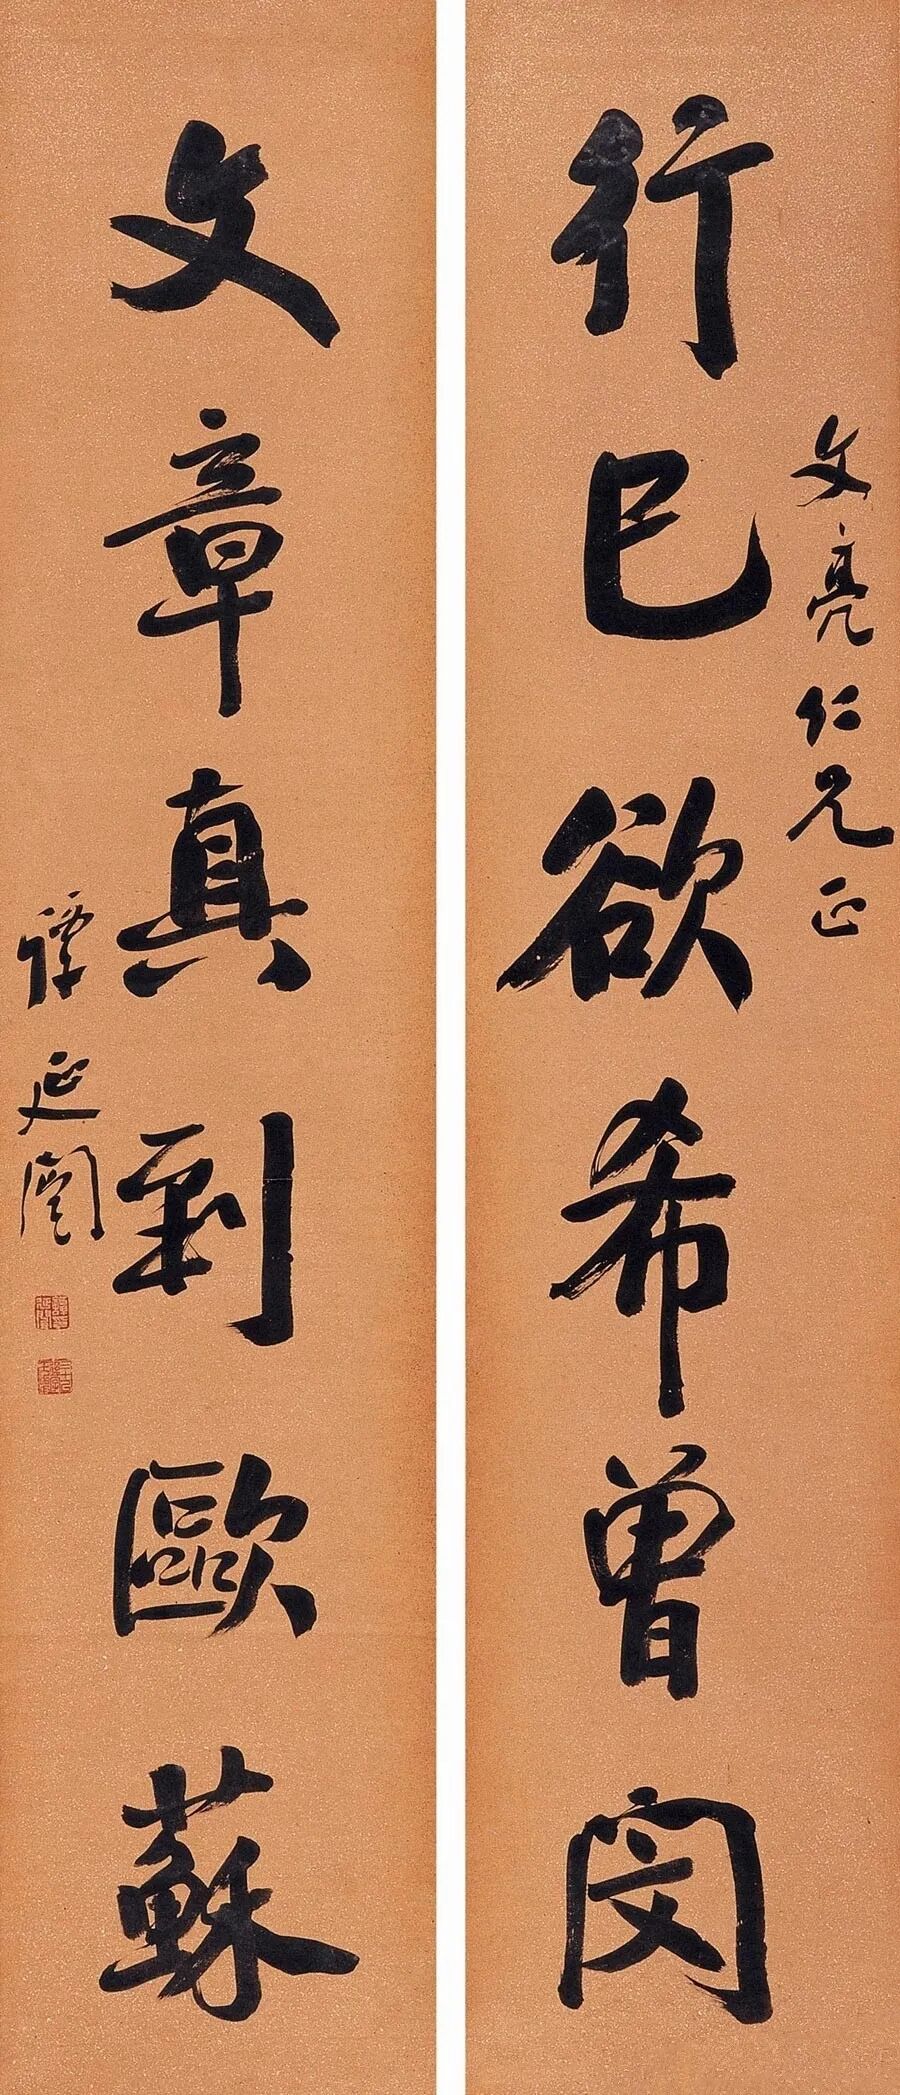 文亮仁兄正
行己欲希曾闵
文章真到歐蘇
譚延闓